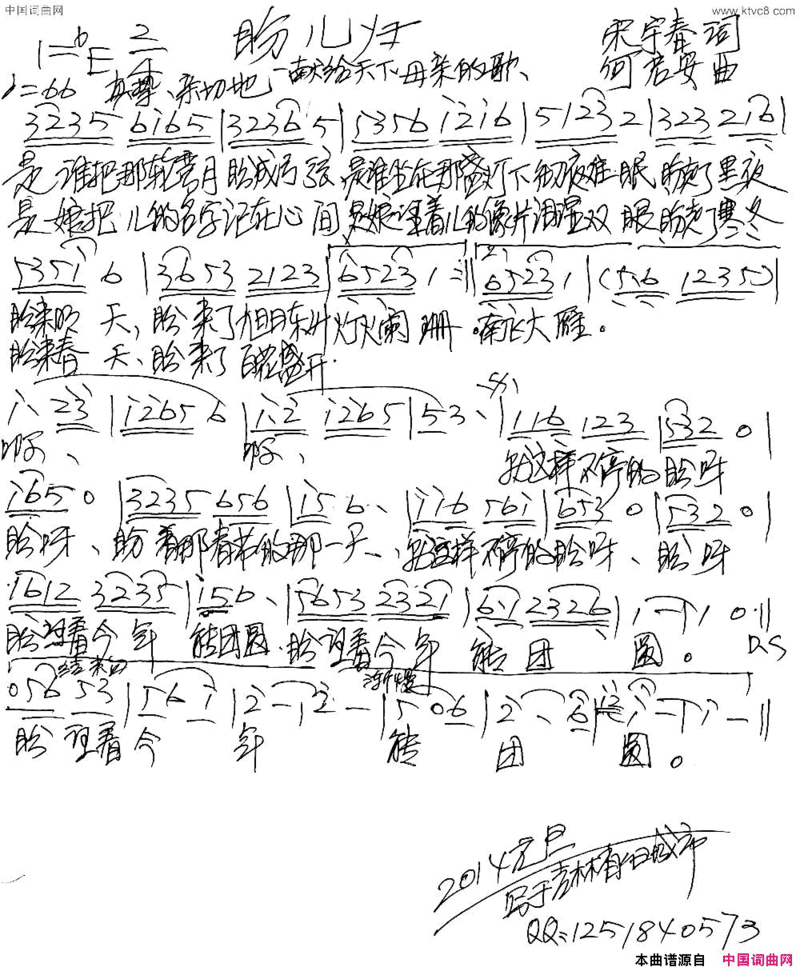 中国词曲网
www.ktvc8.com
1=bE 2/4 盼儿归 宋宇春 词
♩=66 真挚、亲切地 —献给天下母亲的歌、 何君安 曲
3235 6i65 | 3236 5 | 5356 i2i6 | 51232 | 323 2i6 |
是谁把那轮弯月盼成弓弦 是谁坐在那盏灯下彻夜难眠 盼走了黑夜
是娘把儿的名字记在心间 是娘望着儿的像片泪湿双眼 盼走了寒冬
535i 6 | 3653 2123 | 65231 :|| 65231 | (556 12350) |
盼来明天,盼来了旭日东升灯火阑珊。南飞大雁。
盼来春天、盼来了百花盛开
i、23 | i2656 | i、2 i265 | 53、 | 116 123 | 532 0 |
啊、 啊、 就这样不停的盼呀
i65 0 | 3235 656 | i56、 | ii6 56i | 653 0 | 532 0 |
盼呀、盼着那春节的那一天、就这样不停的盼呀、盼呀
1612 3235 | i56、 | 5653 2321 | 61 2326 | 1 — | 1 0 :|| D.S
盼望着今年能团圆.盼望着今年能团圆。
结束句 渐慢
056 53 | 56 i | 2 — | 2 — | 5 06 | 2、6 | i — | i — ||
盼望着今年能团圆。
2014元旦
写于吉林省白城市
QQ:1251840573
本曲谱源自 中国词曲网